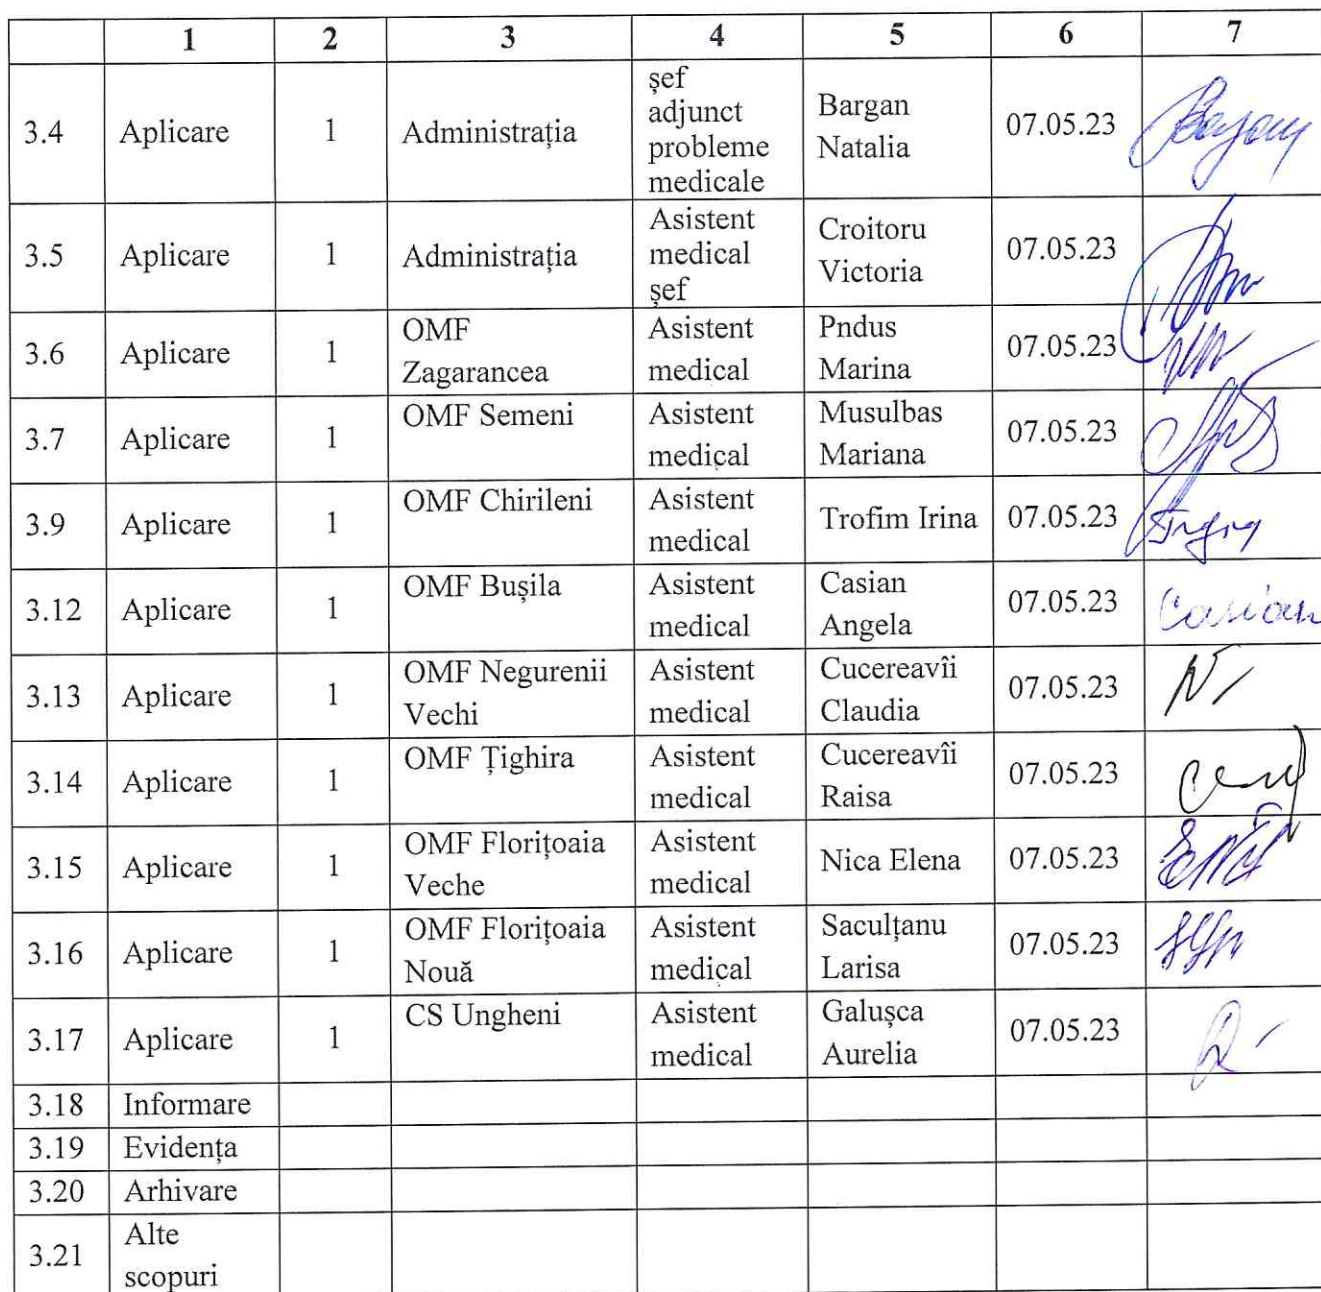 1 2 3 4 5 6 7
3.4 Aplicare 1 Administrația șef adjunct probleme medicale Bargan Natalia 07.05.23
3.5 Aplicare 1 Administrația Asistent medical șef Croitoru Victoria 07.05.23
3.6 Aplicare 1 OMF Zagarancea Asistent medical Pndus Marina 07.05.23
3.7 Aplicare 1 OMF Semeni Asistent medical Musulbas Mariana 07.05.23
3.9 Aplicare 1 OMF Chirileni Asistent medical Trofim Irina 07.05.23
3.12 Aplicare 1 OMF Bușila Asistent medical Casian Angela 07.05.23 Casian
3.13 Aplicare 1 OMF Negurenii Vechi Asistent medical Cucereavîi Claudia 07.05.23
3.14 Aplicare 1 OMF Țighira Asistent medical Cucereavîi Raisa 07.05.23
3.15 Aplicare 1 OMF Florițoaia Veche Asistent medical Nica Elena 07.05.23
3.16 Aplicare 1 OMF Florițoaia Nouă Asistent medical Saculțanu Larisa 07.05.23
3.17 Aplicare 1 CS Ungheni Asistent medical Galușca Aurelia 07.05.23
3.18 Informare
3.19 Evidența
3.20 Arhivare
3.21 Alte scopuri